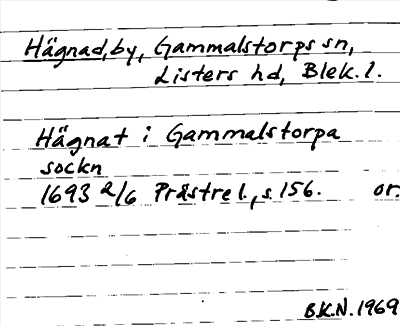 Hägnad, by, Gammalstorps sn,
Listers hd, Blek. l.
Hägnat i Gammalstorpa
sockn
1693 2/6 Prästrel., s. 156. or.
B.K.N. 1969